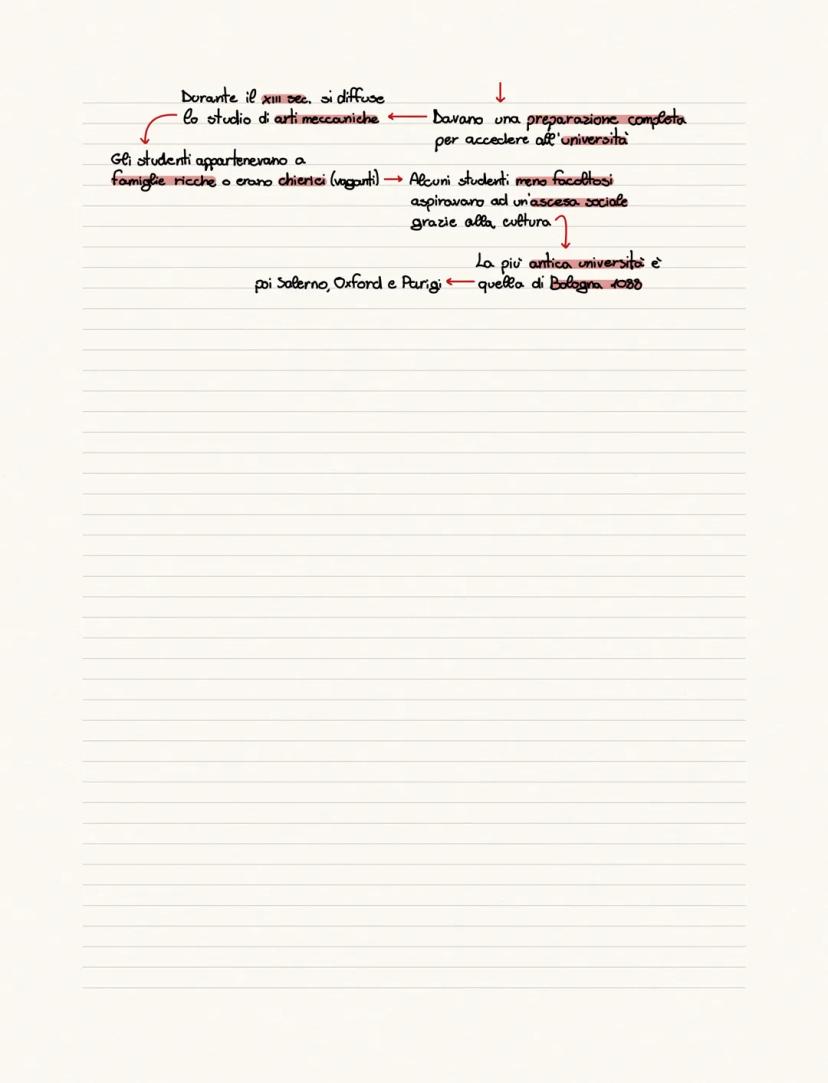 Durante il XIII sec. si diffuse
lo studio di arti meccaniche
Davano una preparazione completa
per accedere all'università
Gli studenti appartenevano a
famiglie ricche o erano chierici (vaganti)
Alcuni studenti meno facoltosi
aspiravano ad un'ascesa sociale
grazie alla cultura
La più antica università è
quella di Bologna 1088
poi Salerno, Oxford e Parigi